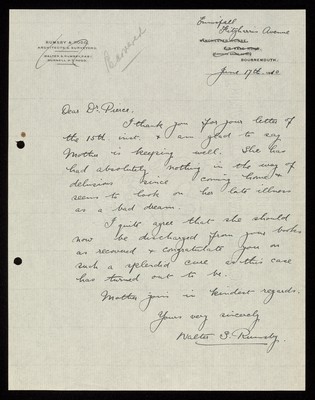 RUMSBY & RUMSBY
ARCHITECTS & SURVEYORS
Recovered
Fitzharris Avenue
BOURNEMOUTH.
June 17th
Dear Dr. Pierce,
I thank you for your letter of
the 15th. inst. & am glad to say
Mother is keeping well. She has
had absolutely nothing in the way of
delusions since coming home &
seems to look on her late illness
as a bad dream.
I quite agree that she should
now be discharged from your books
as recovered & congratulate you on
such a splendid cure as this case
has turned out to be.
Mother joins in kindest regards.
Yours very sincerely
Walter S. Rumsby.